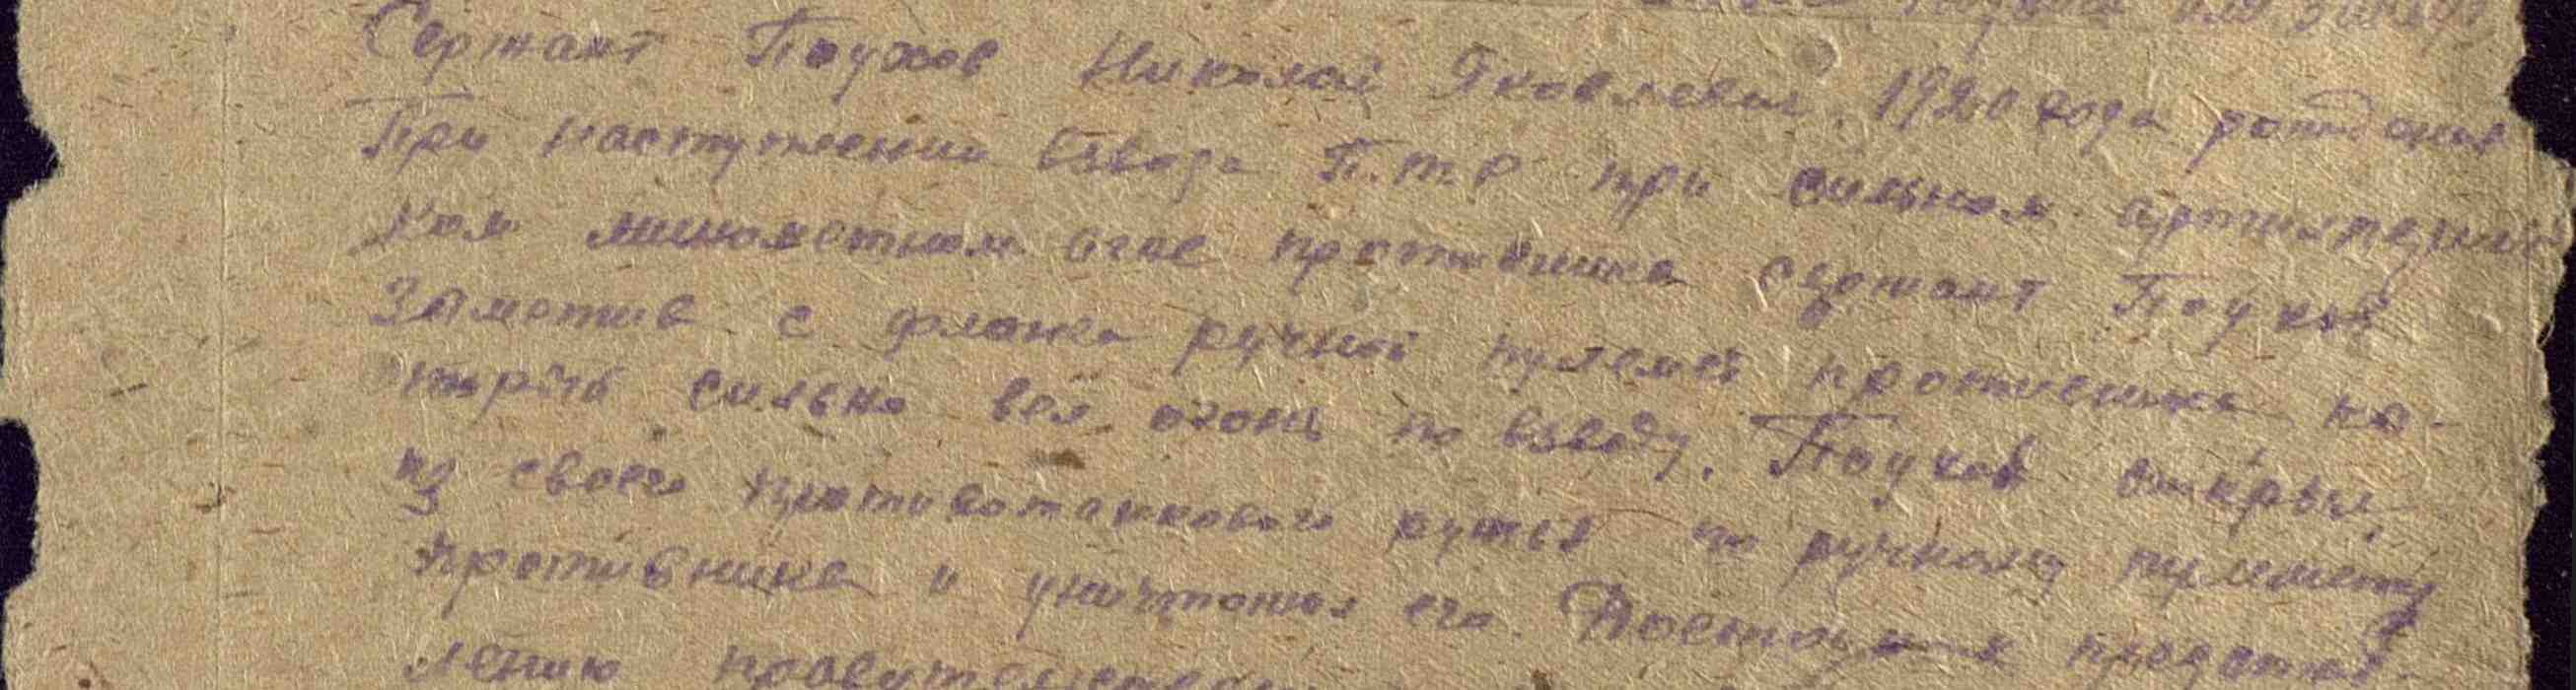 Сержант Паухов Николай Яковлевич, 1920 года рождения
При наступлении взвода П.Т.Р при сильном артиллерийс
ком минометном огне противника сержант Паухов
Заметив с фланга ручной пулемет противника ко-
торый сильно вел огонь по взводу. Паухов открыл
из своего противотанкового ружья по ручному пулемету
противника и уничтожил его. Достоин к представ-
лению правительственной